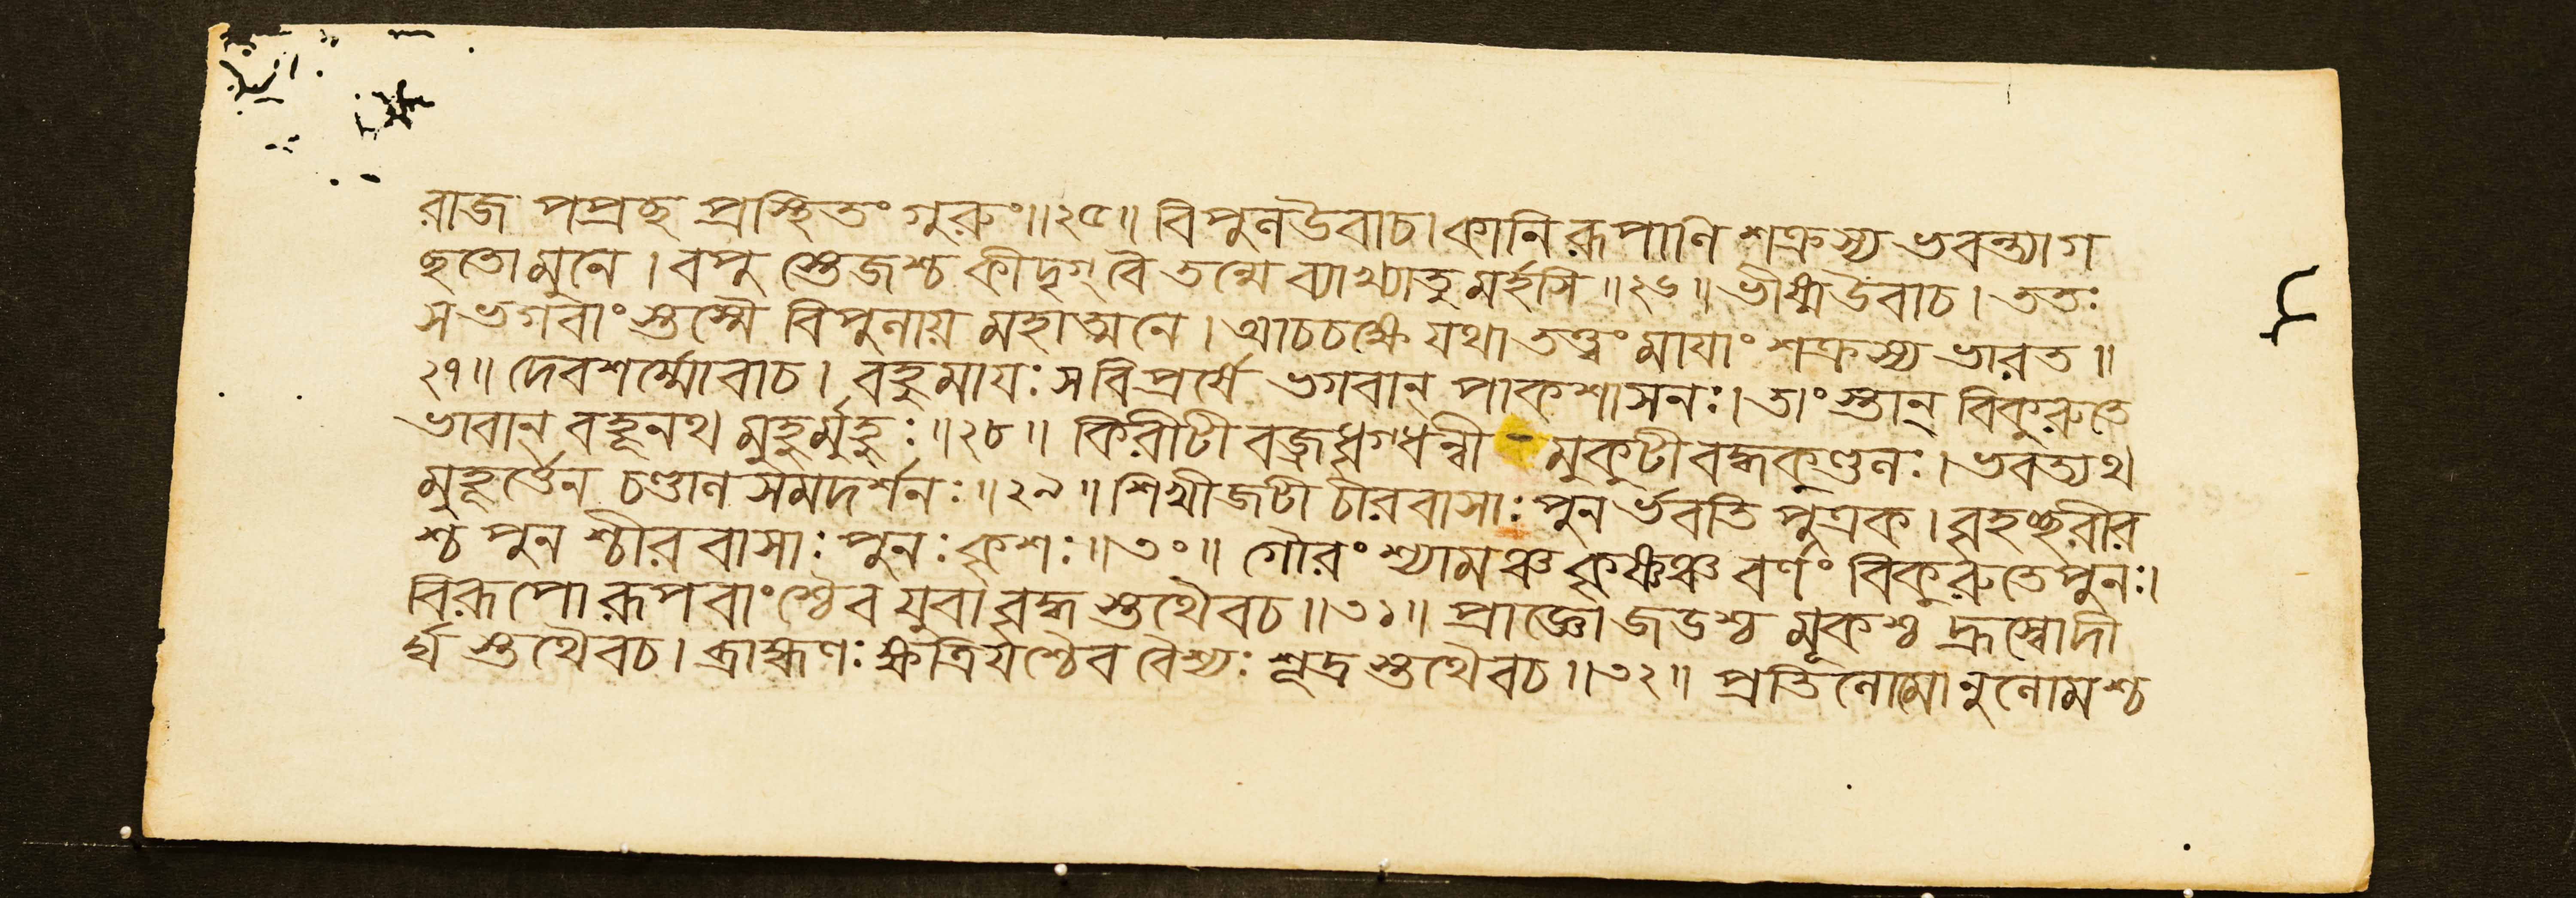 রাজ পপ্রচ্ছ প্রস্থিতং গুরুং॥২৫॥ বিপুলউবাচ।কানি রূপাণি শক্রস্য ভবন্ত্যাগ
চ্ছতোমুনে। বপু স্তেজশ্চ কীদৃগ্ বৈ তন্মে ব্যাখ্যাতু মর্হসি॥২৬॥ ভীষ্মউবাচ। ততঃ
স ভগবাং স্তস্মৈ বিপুলায় মহাত্মনে। আচচক্ষে যথা তত্ত্বং মাযাং শক্রস্য ভারত॥
২৭॥ দেবশর্ম্মোবাচ। বহুমাযঃ সবিপ্রর্ষে ভগবান্ পাকশাসনঃ। তাং স্তান্ বিকুরুতে
ভাবান্ বহূনথ মুহুর্মুহুঃ॥২৮॥ কিরীটী বজ্রধৃগ্ধন্বী মুকুটী বদ্ধকুণ্ডলঃ। ভবত্যথ
মুহূর্ত্তেন চণ্ডাল সমদর্শনঃ॥২৯॥ শিখী জটী চীরবাসাঃ পুন র্ভবতি পুত্রক। বৃহচ্ছরীর
শ্চ পুন শ্চীর বাসাঃ পুনঃ কৃশঃ॥৩০॥ গৌরং শ্যামঞ্চ কৃষ্ণঞ্চ বর্ণং বিকুরুতে পুনঃ।
বিরূপো রূপবাংশ্চৈব যুবা বৃদ্ধ স্তথৈবচ॥৩১॥ প্রাজ্ঞো জডশ্চ মূকশ্চ হ্রস্বোদী
র্ঘ স্তথৈবচ। ব্রাহ্মণঃ ক্ষত্রিযশ্চৈব বৈশ্যঃ শূদ্র স্তথৈবচ॥৩২॥ প্রতিলোমানুলোমশ্চ